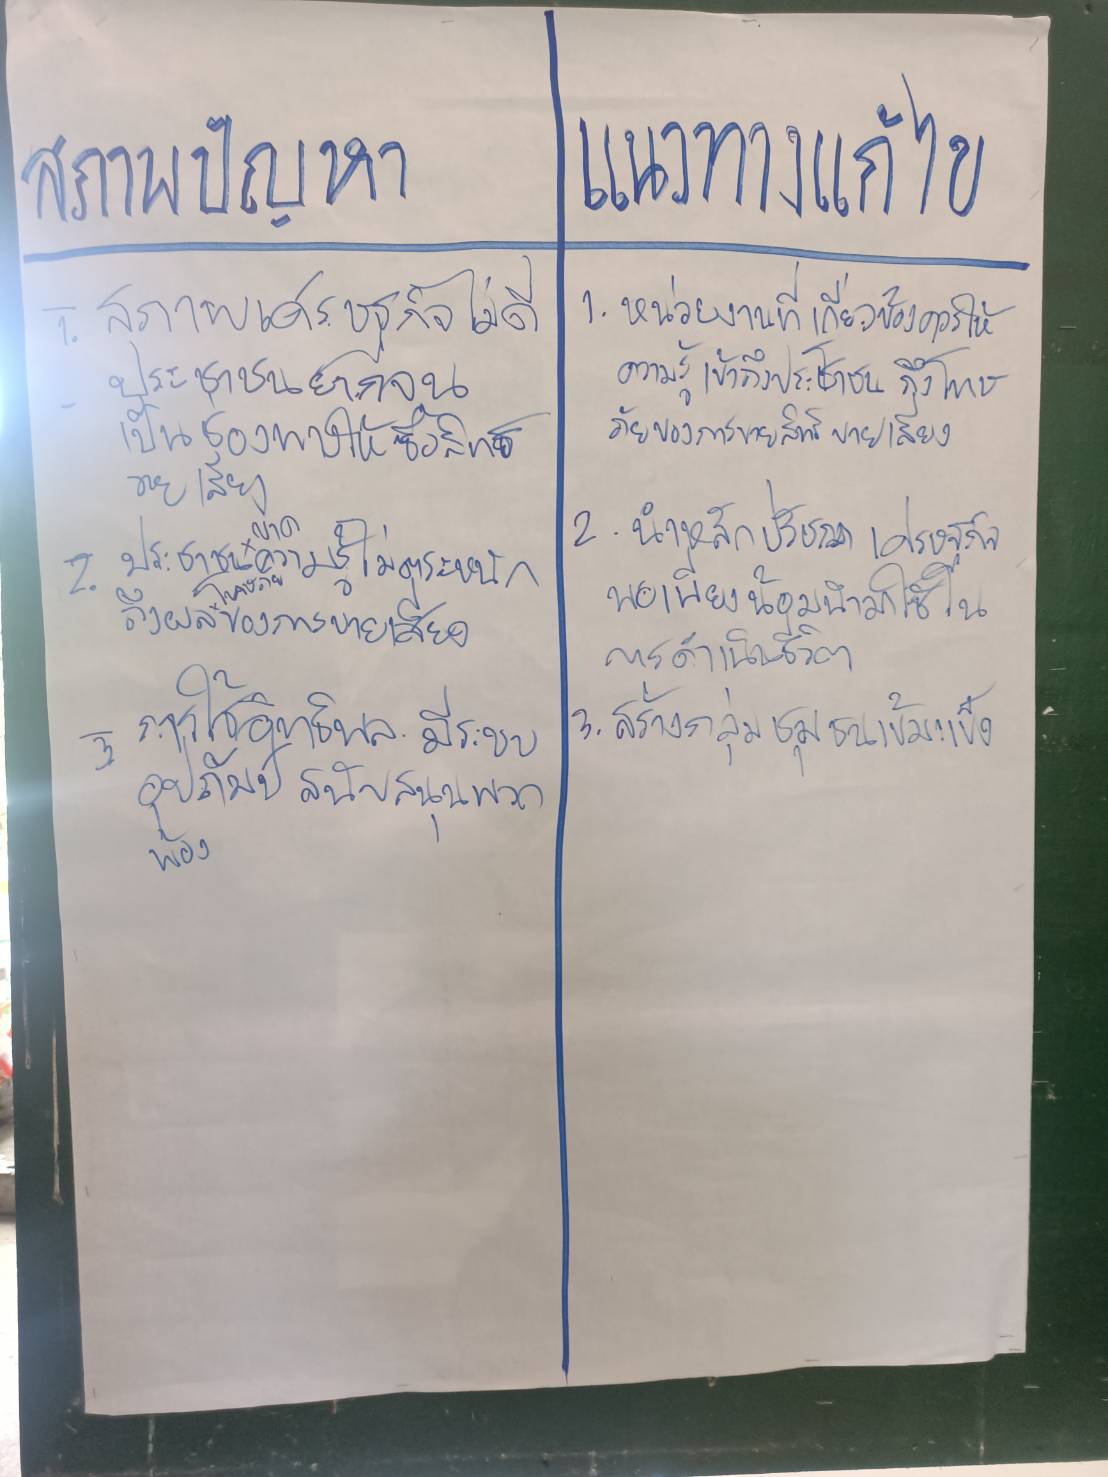 สภาพปัญหา
1. สภาพเศรษฐกิจไม่ดี
ประชาชนยากจน
เป็นช่องทางให้ซื้อสิทธิ
ขายเสียง
2. ประชาชนขาดความรู้ไม่ตระหนัก
ถึงผลของการขายเสียง
3 การใช้อิทธิพล มีระบบ
อุปถัมป์ สนับสนุนพวก
พ้อง
แนวทางแก้ไข
1. หน่วยงานที่เกี่ยวข้องควรให้
ความรู้เข้าถึงประชาชน ถึงโทษ
ภัยของการขายสิทธิ ขายเสียง
2. นำหลักปรัชญา เศรษฐกิจ
พอเพียงน้อมนำมาใช้ใน
การดำเนินชีวิต
3. สร้างกลุ่มชุมชนเข้มแข็ง